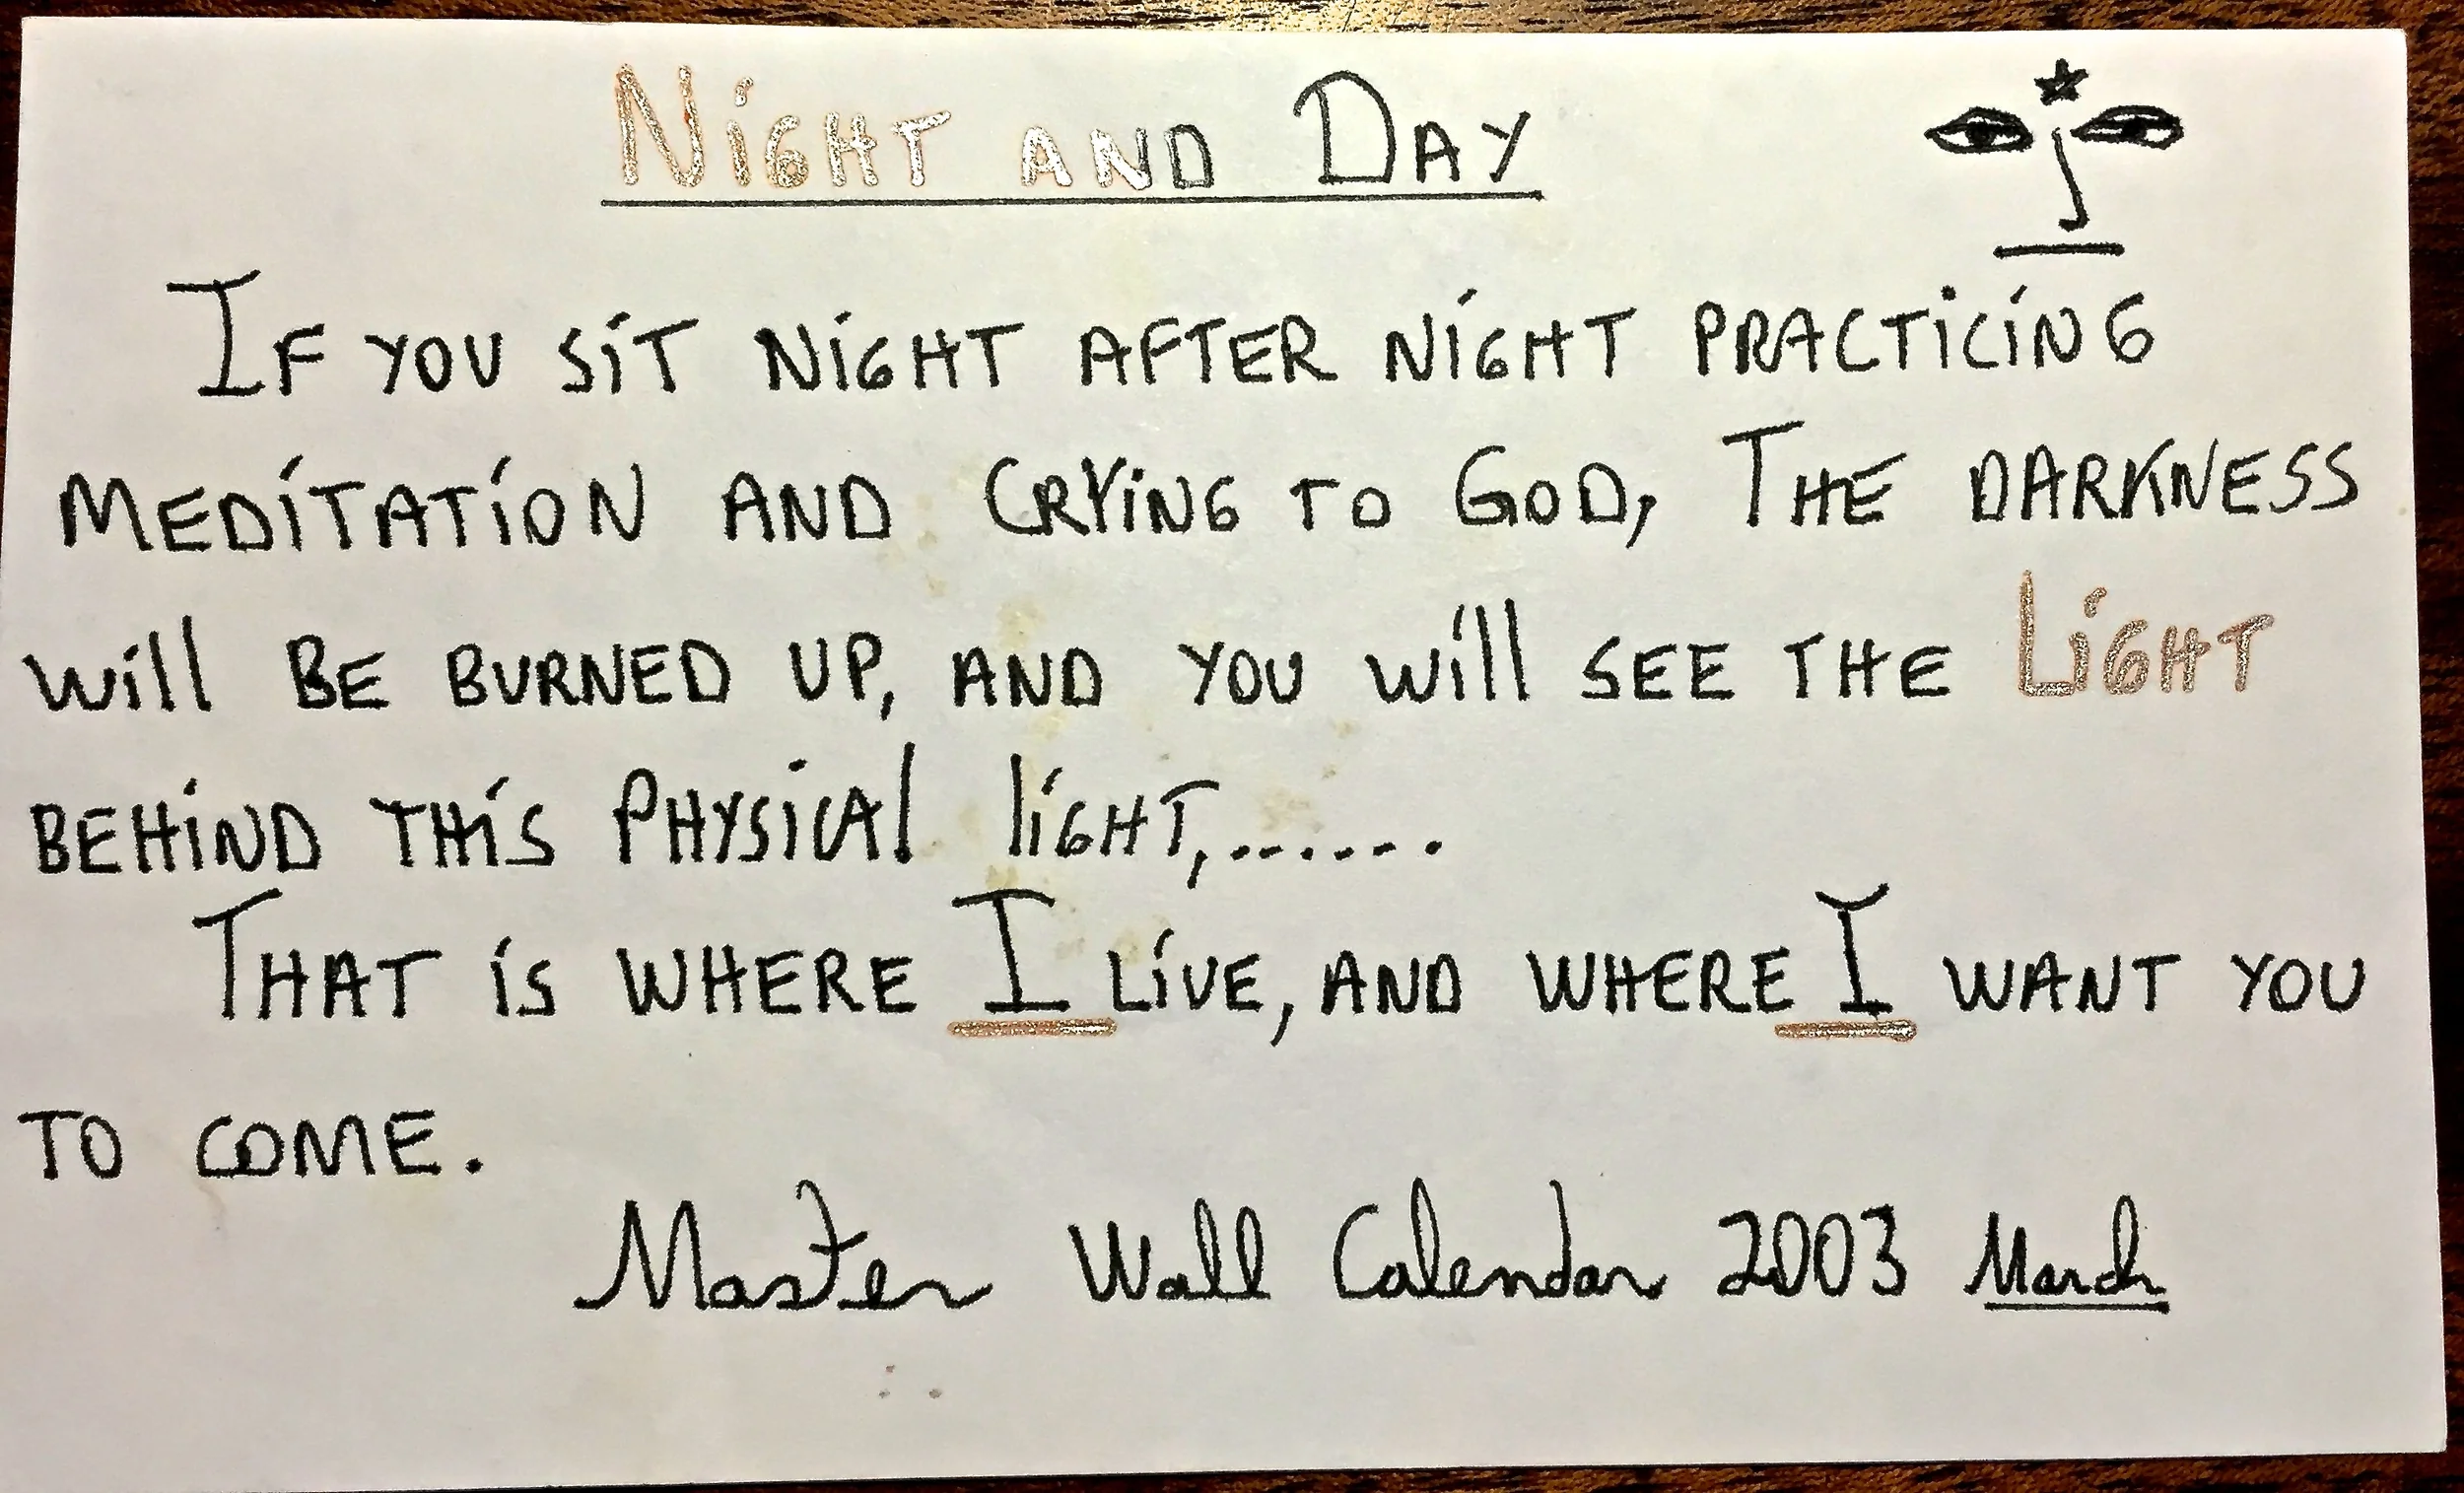 Night and Day
If you sit night after night practicing
meditation and crying to God, The darkness
will be burned up, and you will see the Light
behind this Physical light,.......
That is where I live, and where I want you
to come.
Master Wall Calendar 2003 March